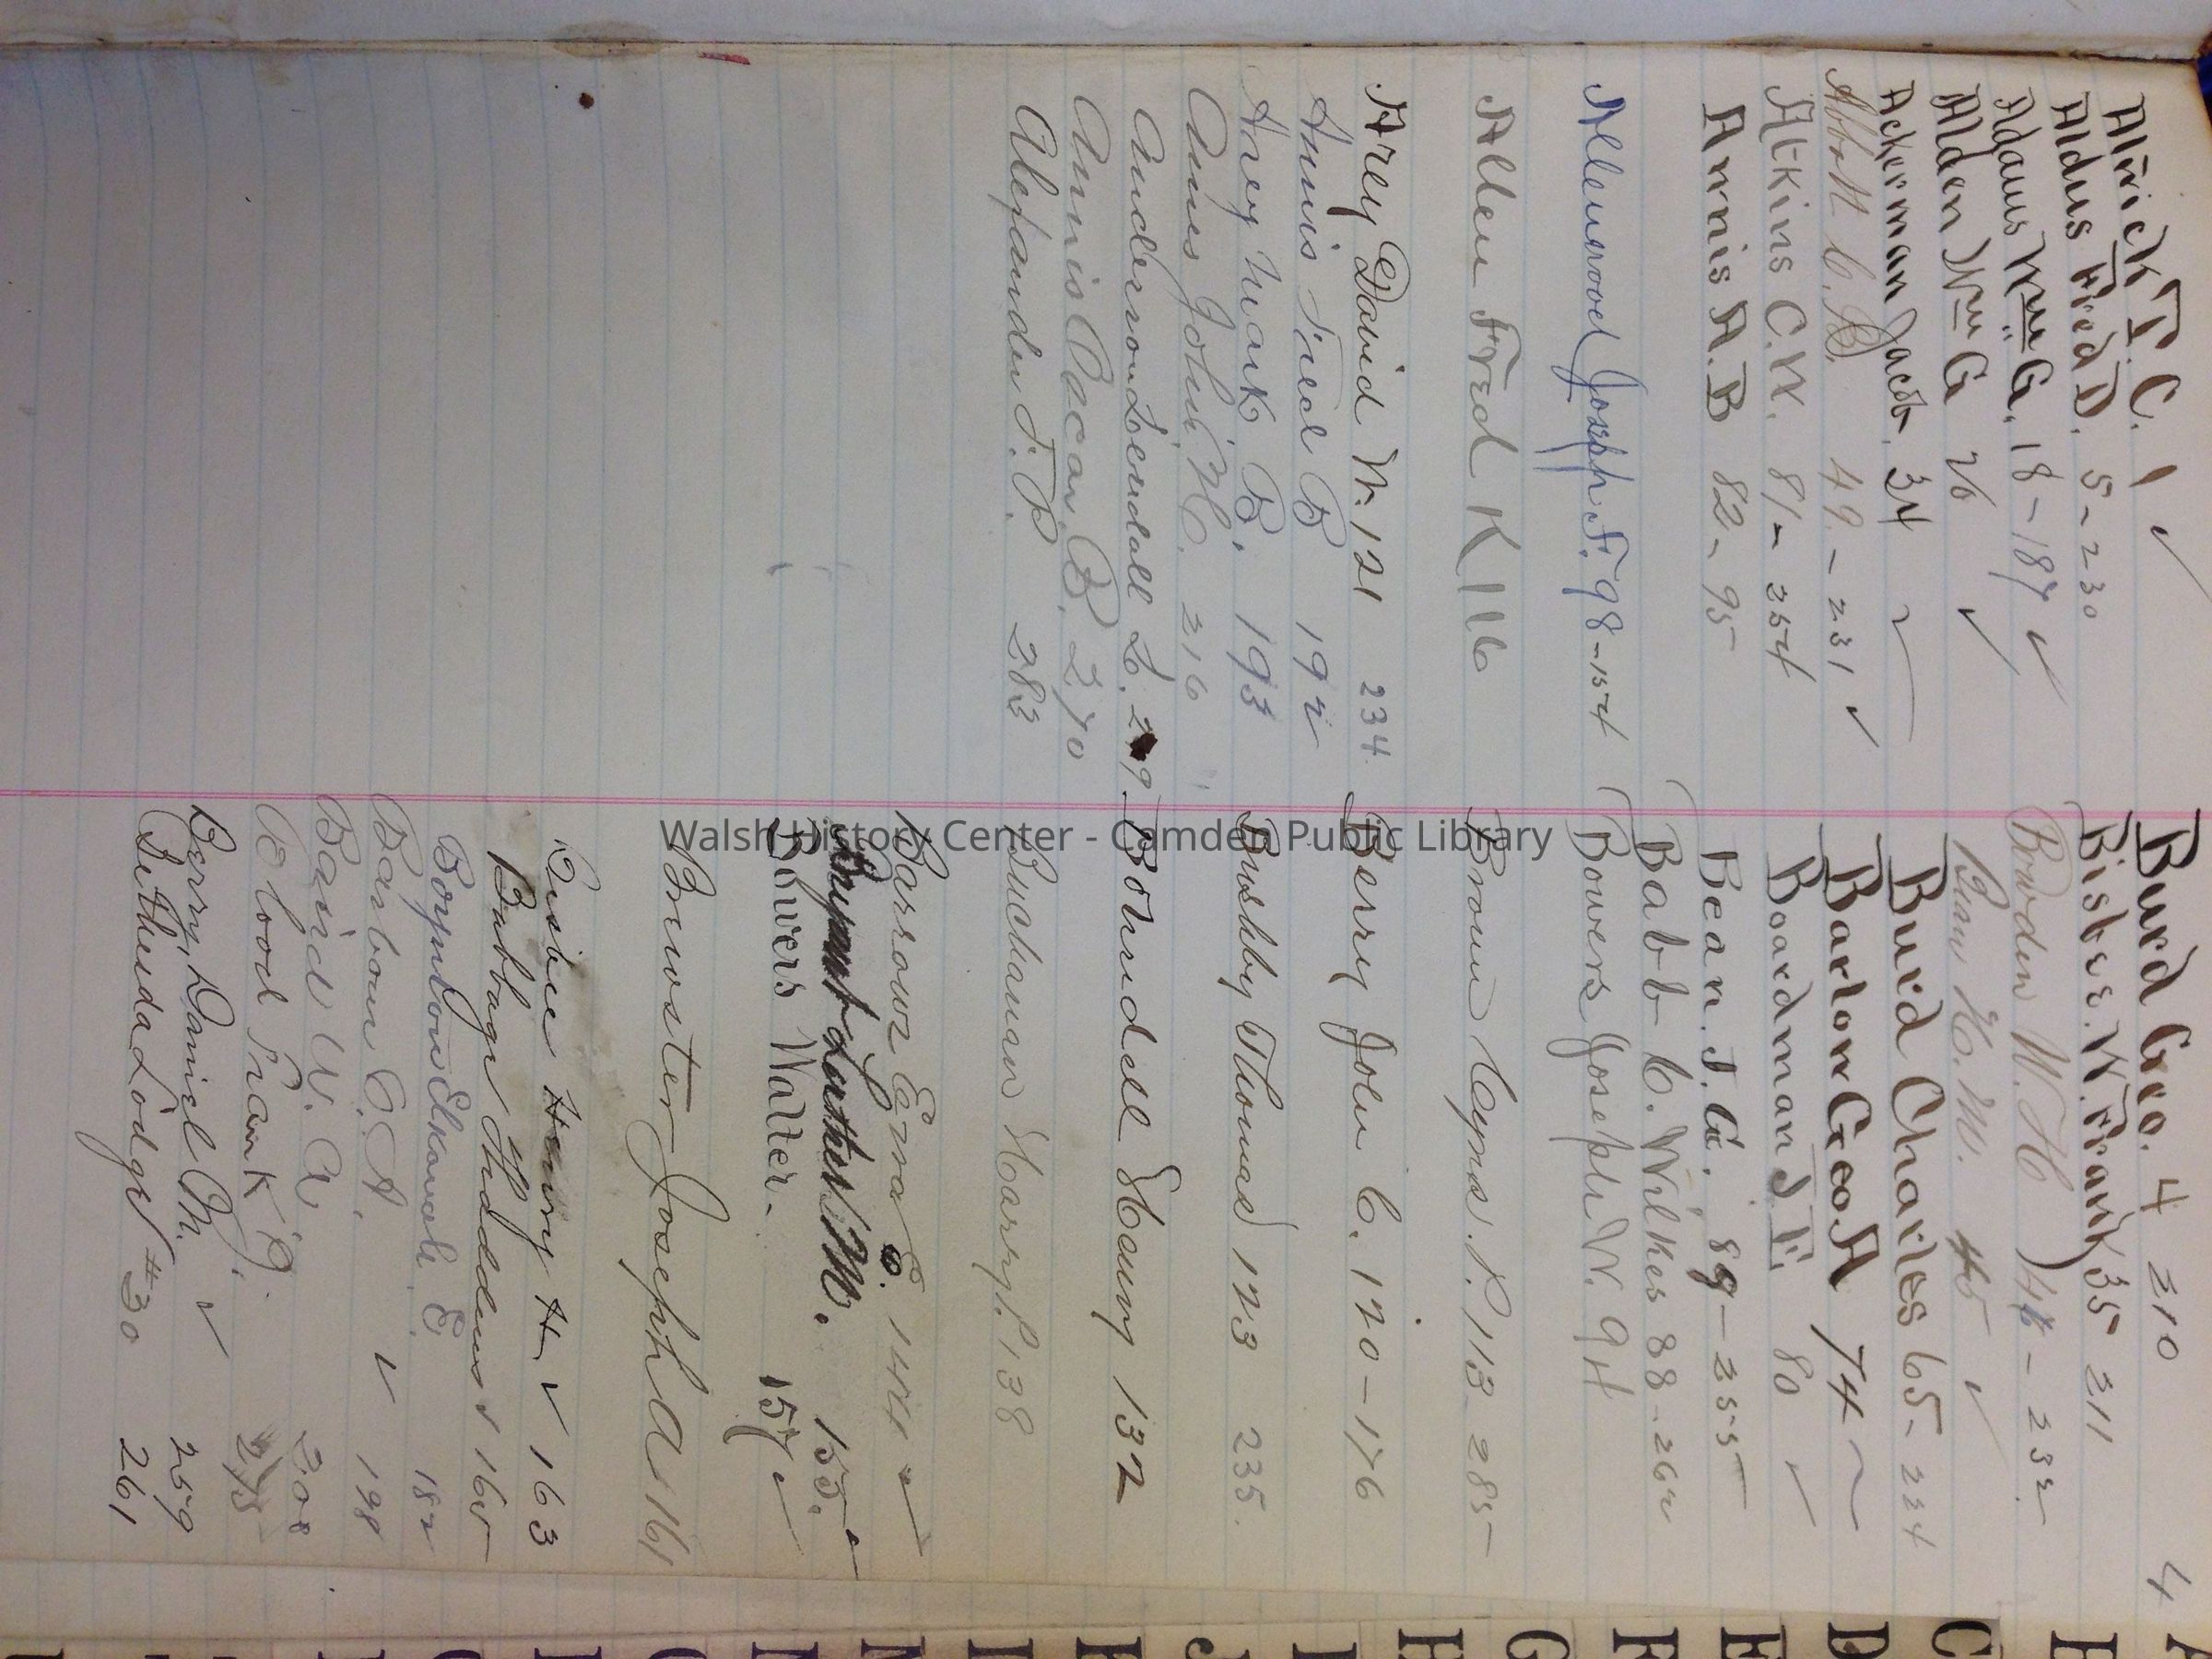 Amrick T. C. 1 ✓
Aldus Fred D. 5-230
Adams Wm G. 18-187 ✓
Alden Wm G 26 ✓
Ackerman Jacob. 34 ✓
Abbott C. B. 49-231 ✓
Atkins C. W. 81-254
Annis A. B 82-95
Allenwood Joseph F. 98-154
Allen Fred K 116
Arey David W. 121 234
Annis Fred B 192
Arey Mark B. 193
Ames John H. 216
Anderson Lendall L.
Annis Oscar B. 270
Alexander F. P. 283
Burd Geo. 4 210 4
Bisbee. W. Frank 35 211
Bowden W. H 232
Bean H. M. 45 ✓
Burd Charles 65-224
Barlow Geo A 74
Boardman J E 80 ✓
Bean. J. G. 89-255
Babb C. Wilkes 88-262
Bowers Joseph W. 94
Brown Cyrus. P. 113-285
Berry John C. 120-176
Bushby Thomas 123 235.
Bohndell Henry 132
Buchanan Harry. P 138
Barrows Ezra
Bryant Luther M. 153.
Bowers Walter. 157
Brewster Joseph A 161
Bisbee Henry H ✓ 163
Babbage Thaddeus ✓ 165
Boynton E. 182
Barbour C. A. ✓ 198
Baird W. A. 208
Blood Frank J. 275
Berry, Daniel M. ✓ 259
Bethesda Lodge #30 261
A
B
C
D
E
F
G
H
I
J
Walsh History Center - Camden Public Library